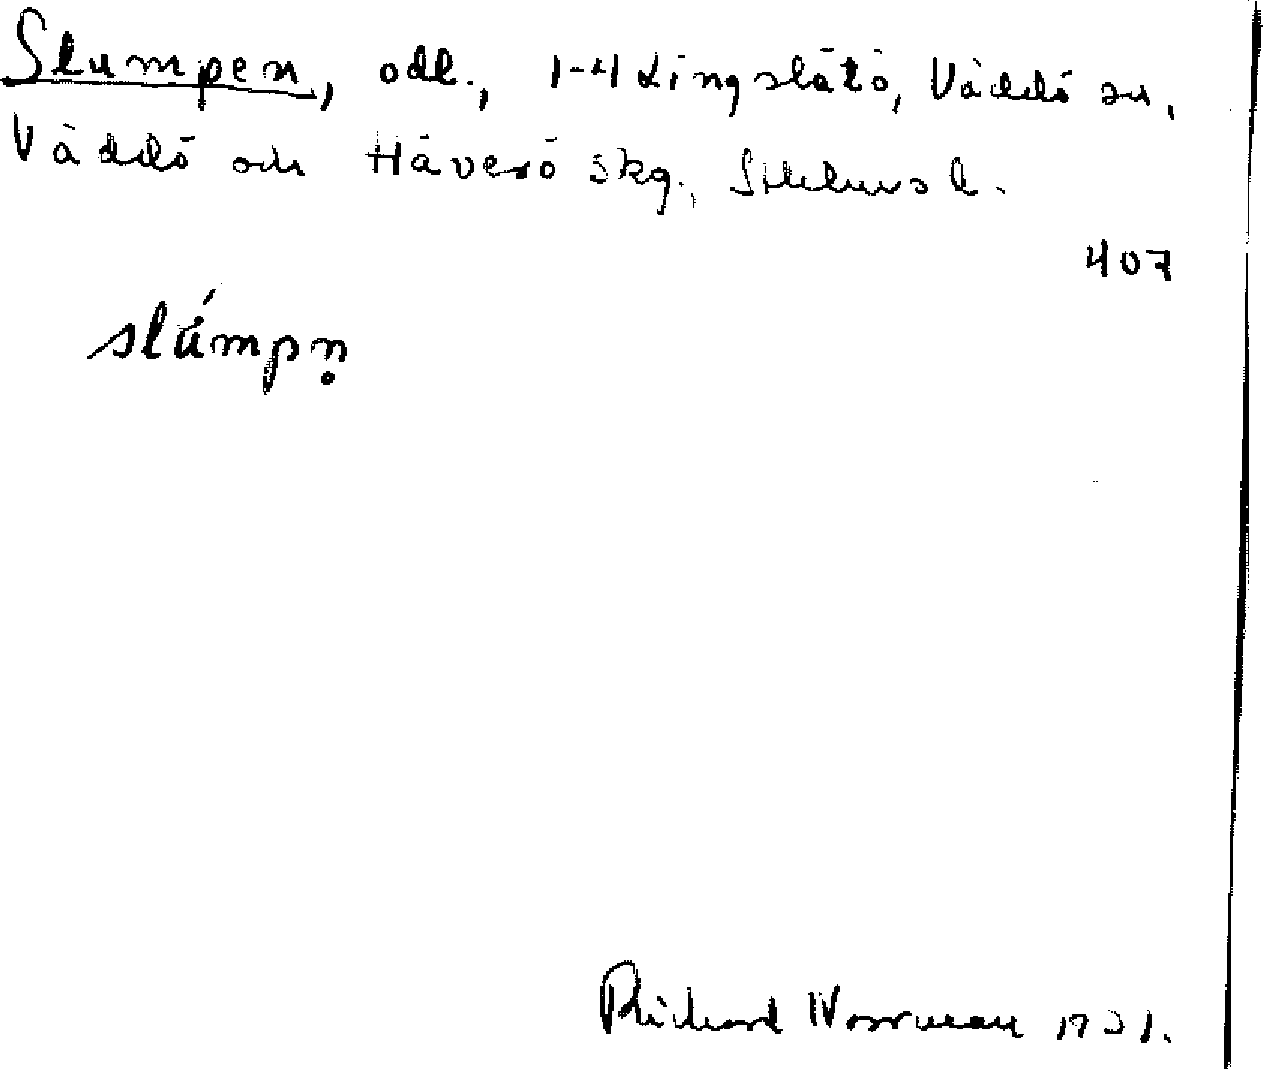 Slumpen, odl., 1-4 Lingslätö, Väddö sn,
Väddö och Häverö skg., Sthlms l.
407
slúmpṇ
Richard Norrman 1931.